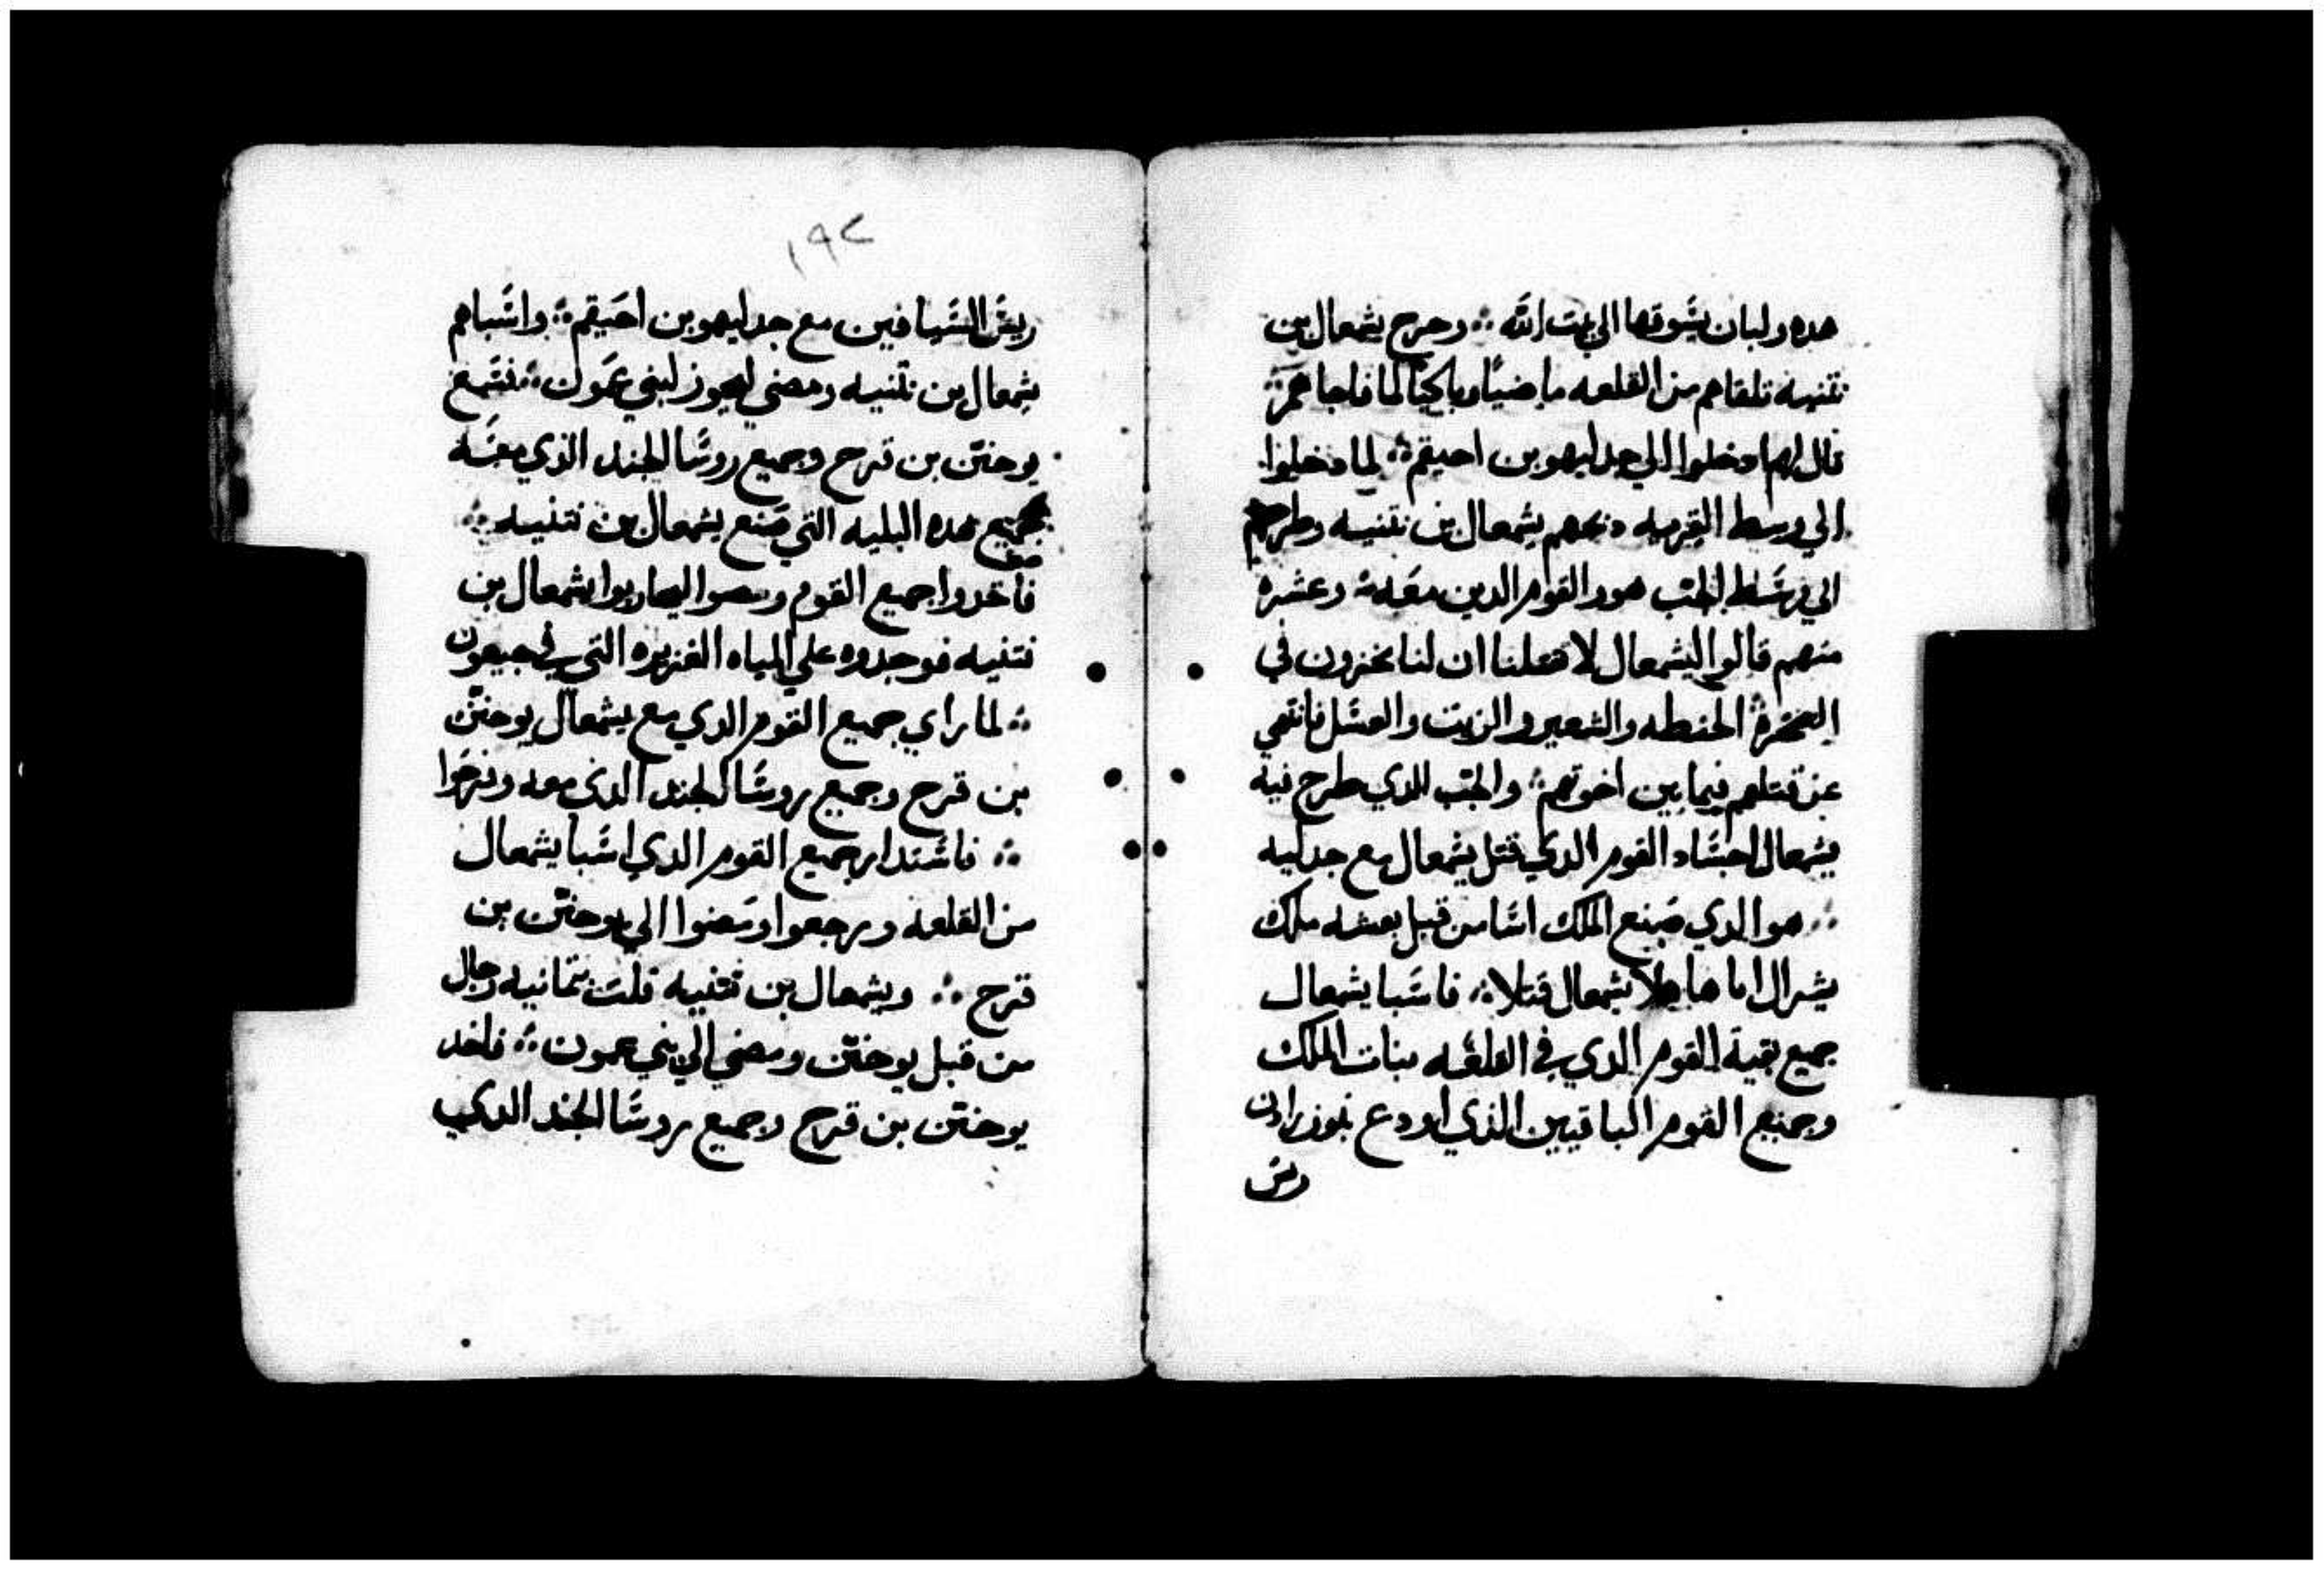 هده ولبان يسوقها الي بيت الله ∴ وخرج يشمعال بن
نتنيه تلقاهم من القلعه ماضيًا وباكيًا لما فاجاهم
قال لهم ادخلوا الي جدليهو بن احيقم ∴ لما دخلوا
الي وسط القريه دبحهم يشمعال بن نتنيه وطرحهم
الي وسط الجب هو والقوم الدين معه ∴ وعشره
منهم قالوا ليشمعال لا تقتلنا ان لنا مخزون في
الصخره الحنطه والشعير والزيت والعسل فانتهي
عن قتلهم فيما بين اخوتهم ∴ والجب الدي طرح فيه
يشمعال اجساد القوم الدي قتل يشمعال مع جدليه
∴ هو الدي صنع الملك اسا من قبل بعشه ملك
يشرال اياها ملا يشمعال قتلا ∴ فاسبا يشمعال
جميع بقية القوم الدي في القلعه بنات الملك
وجميع القوم الباقيين الذي اودع نبوزرادن
ريس
١٩٢
ريس السيافين مع جدليهو بن احيقم ∴ واسباهم
يشمعال بن نتنيه ومضي ليجوز لبني عمون ∴ فسمع
يوحنن بن قرح وجميع روسا الجند الذي معه
بجميع هده البليه التي صنع يشمعال بن نتنيه ∴
فاخدوا جميع القوم ومضوا ليحاربوا يشمعال بن
نتنيه فوجدوه علي المياه الغزيره التي في جبعون
∴ لما راي جميع القوم الدي مع يشمعال يوحنن
بن قرح وجميع روسا الجند الذي معه وفرحوا
∴ فاستدار جميع القوم الدي اسبا يشمعال
من القلعه ورجعوا ومضوا الي يوحنن بن
قرح ∴ ويشمعال بن نتنيه فلت بتمانيه رجال
من قبل يوحنن ومضي الي بني عمون ∴ فاخد
يوحنن بن قرح وجميع روسا الجند الدي